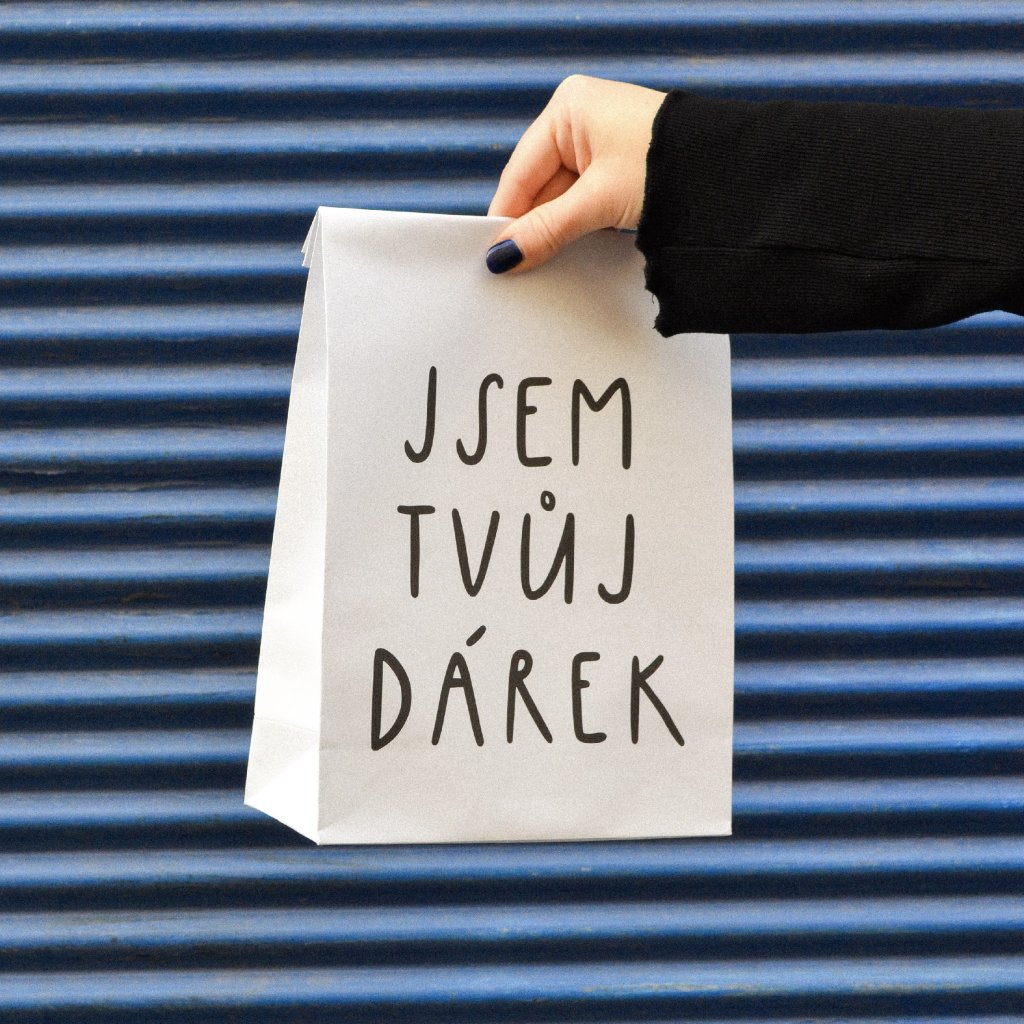 JSEM
TVŮJ
DÁREK